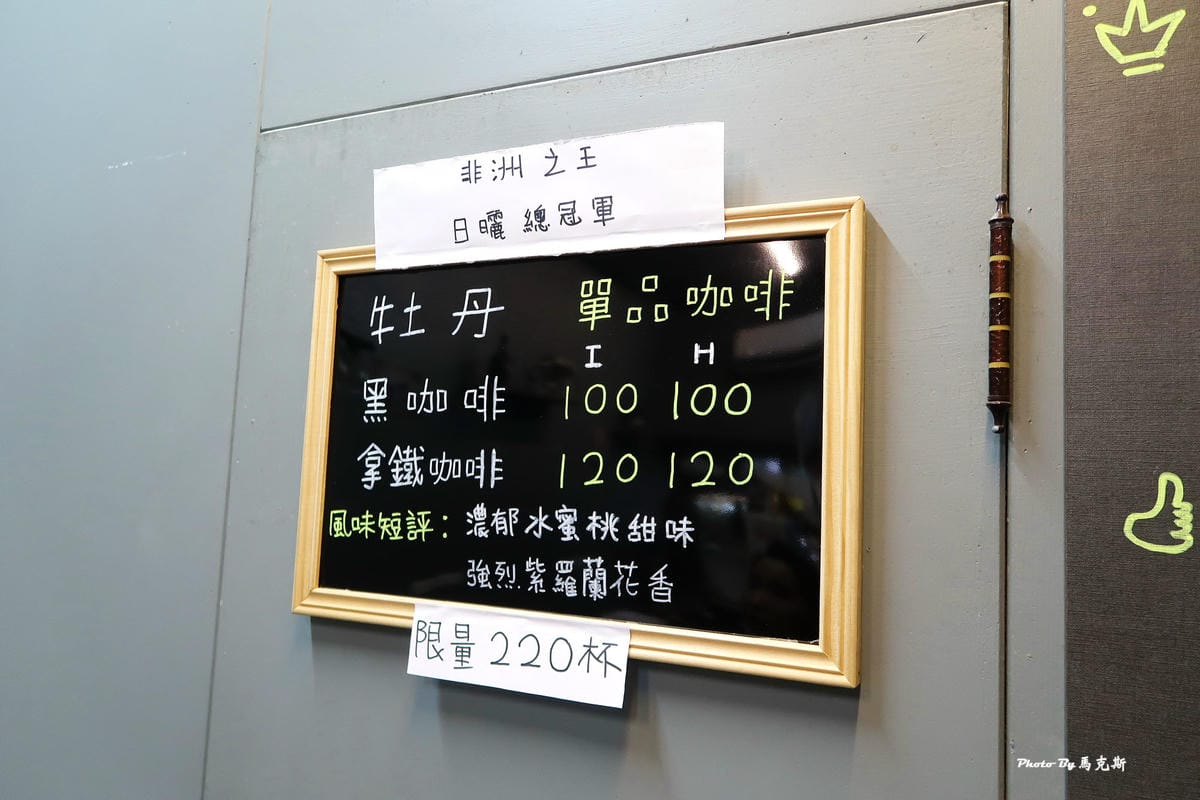 非洲之王
日曬 總冠軍
牡丹 單品咖啡
I H
黑咖啡 100 100
拿鐵咖啡 120 120
風味短評：濃郁水蜜桃甜味
強烈紫羅蘭花香
限量220杯
Photo By 馬克斯